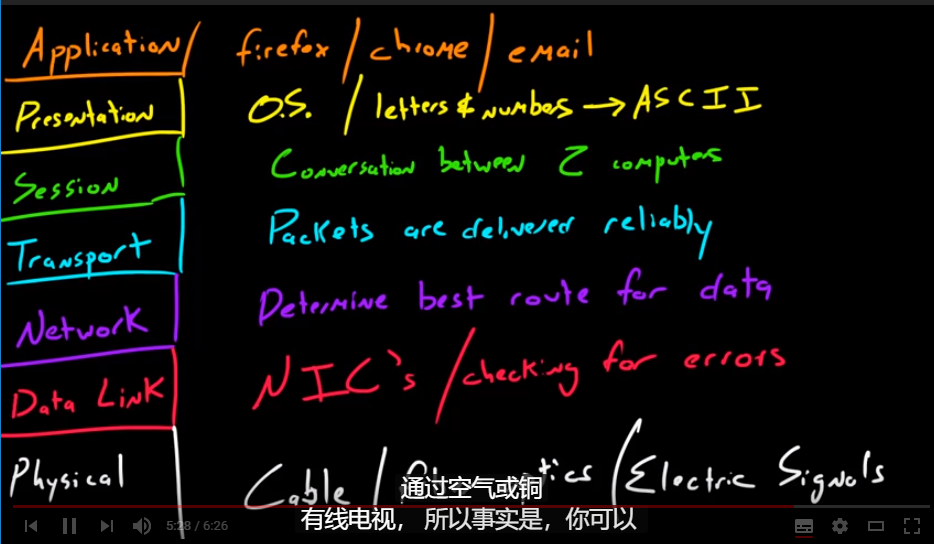 Application / firefox / chrome / email
Presentation O.S. / letters & numbers → ASCII
Session Conversation between 2 computers
Transport Packets are delivered reliably
Network Determine best route for data
Data Link NIC's / checking for errors
Physical Cable / / Electric Signals
通过空气或铜
有线电视， 所以事实是，你可以
5:28 / 6:26